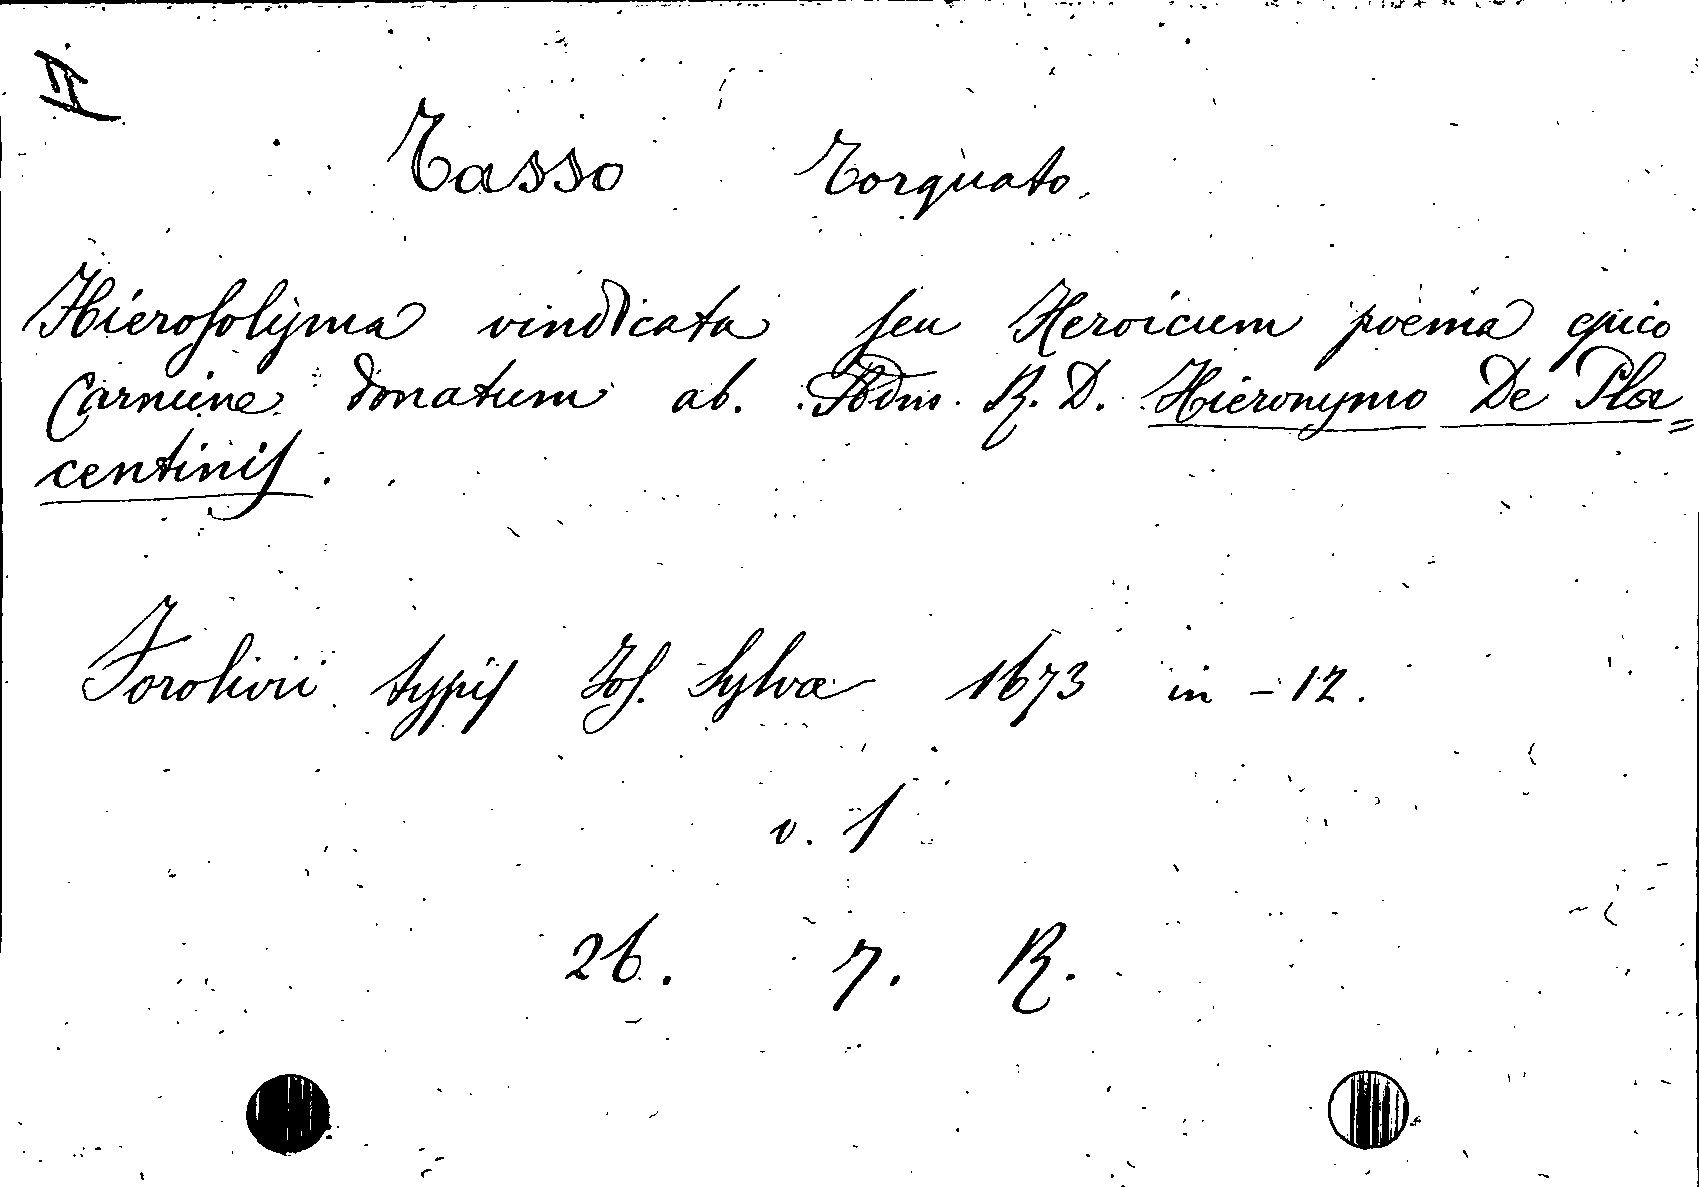 II
Tasso Torquato.
Hierosolyma vindicata seu Heroicum poema epico
Carmine donatum ab. Adm. R. D. Hieronymo De Pla=
centinis.
Forolivii typis Jos. Sylvæ 1673 in - 12.
v. 1
26. 7. R.